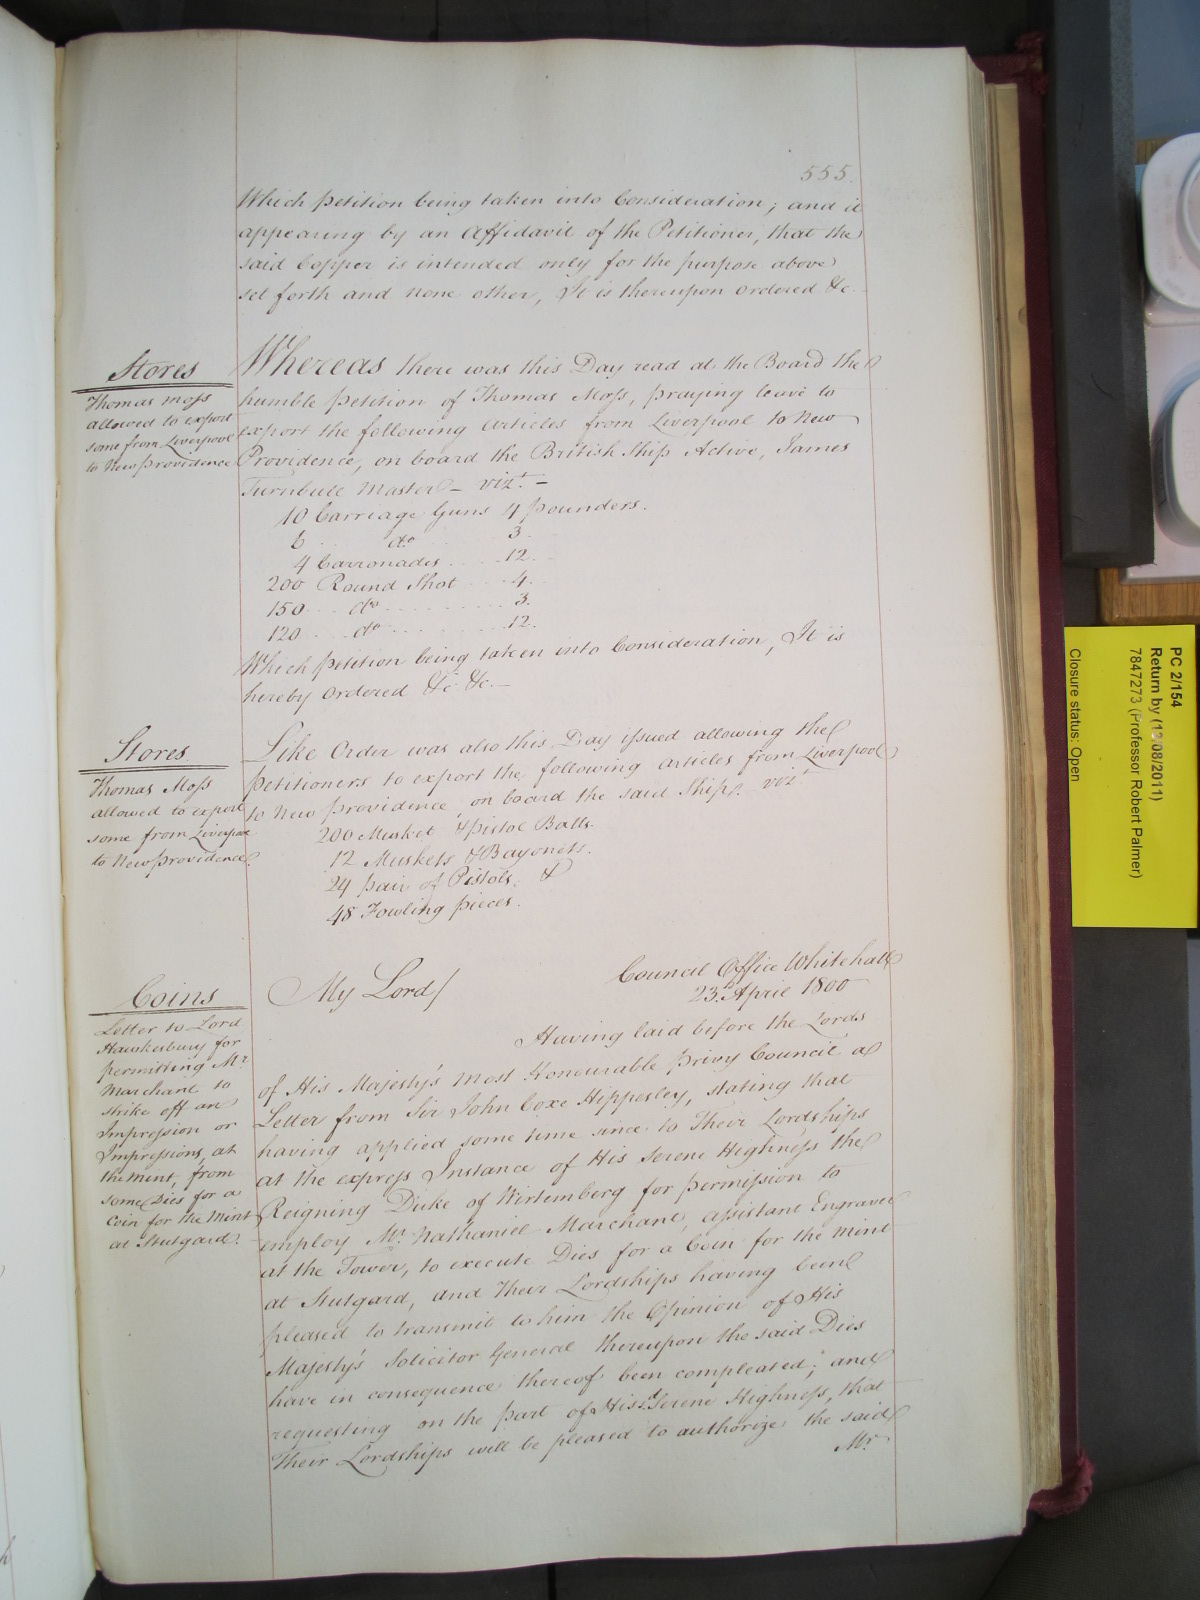 555.
Which petition being taken into Consideration; and it
appearing by an Affidavit of the Petitioner, that the
said Copper is intended only for the purpose above
set forth and none other, It is thereupon Ordered &c.
Stores
Thomas Moss
allowed to export
some from Liverpool
to New Providence
Whereas there was this Day read at the Board the
humble petition of Thomas Moss, praying leave to
export the following articles from Liverpool to New
Providence, on board the British Ship Active, James
Turnbull Master – vizt. –
10 Carriage Guns 4 pounders.
6 .. do 3.
4 Carronades .... 12.
200 Round Shot .... 4.
150 .... do ......... 3.
120 .... do ......... 12.
Which petition being taken into Consideration, It is
hereby Ordered &c &c. –
Stores
Thomas Moss
allowed to export
some from Liverpool
to New providence
Like Order was also this Day issued allowing the
petitioners to export the following articles from Liverpool
to New providence on board the said Ship. vizt
200 Musket & pistol Balls.
12 Muskets & Bayonets.
24 pair of Pistols, &
48 Fowling pieces.
Coins
Letter to Lord
Hawkesbury for
permitting Mr.
Marchant to
strike off an
Impression or
Impressions, at
the Mint, from
some Dies for a
Coin for the Mint
at Stutgard.
Council Office Whitehall
23d. April 1800
My Lord/
Having laid before the Lords
of His Majesty's most Honourable privy Council a
Letter from Sir John Coxe Hippesley, stating that
having applied some time since to Their Lordships
at the express Instance of His Serene Highness the
Reigning Duke of Wirtemberg for permission to
employ Mr. Nathaniel Marchant, assistant Engraver
at the Tower, to execute Dies for a Coin for the Mint
at Stutgard, and Their Lordships having been
pleased to transmit to him the Opinion of His
Majesty's Solicitor General thereupon the said Dies
have in consequence thereof been compleated; and
requesting on the part of His Serene Highness, that
Their Lordships will be pleased to authorize the said
Mr.
PC 2/154
Return by (12/08/2011)
7847273 (Professor Robert Palmer)
Closure status: Open